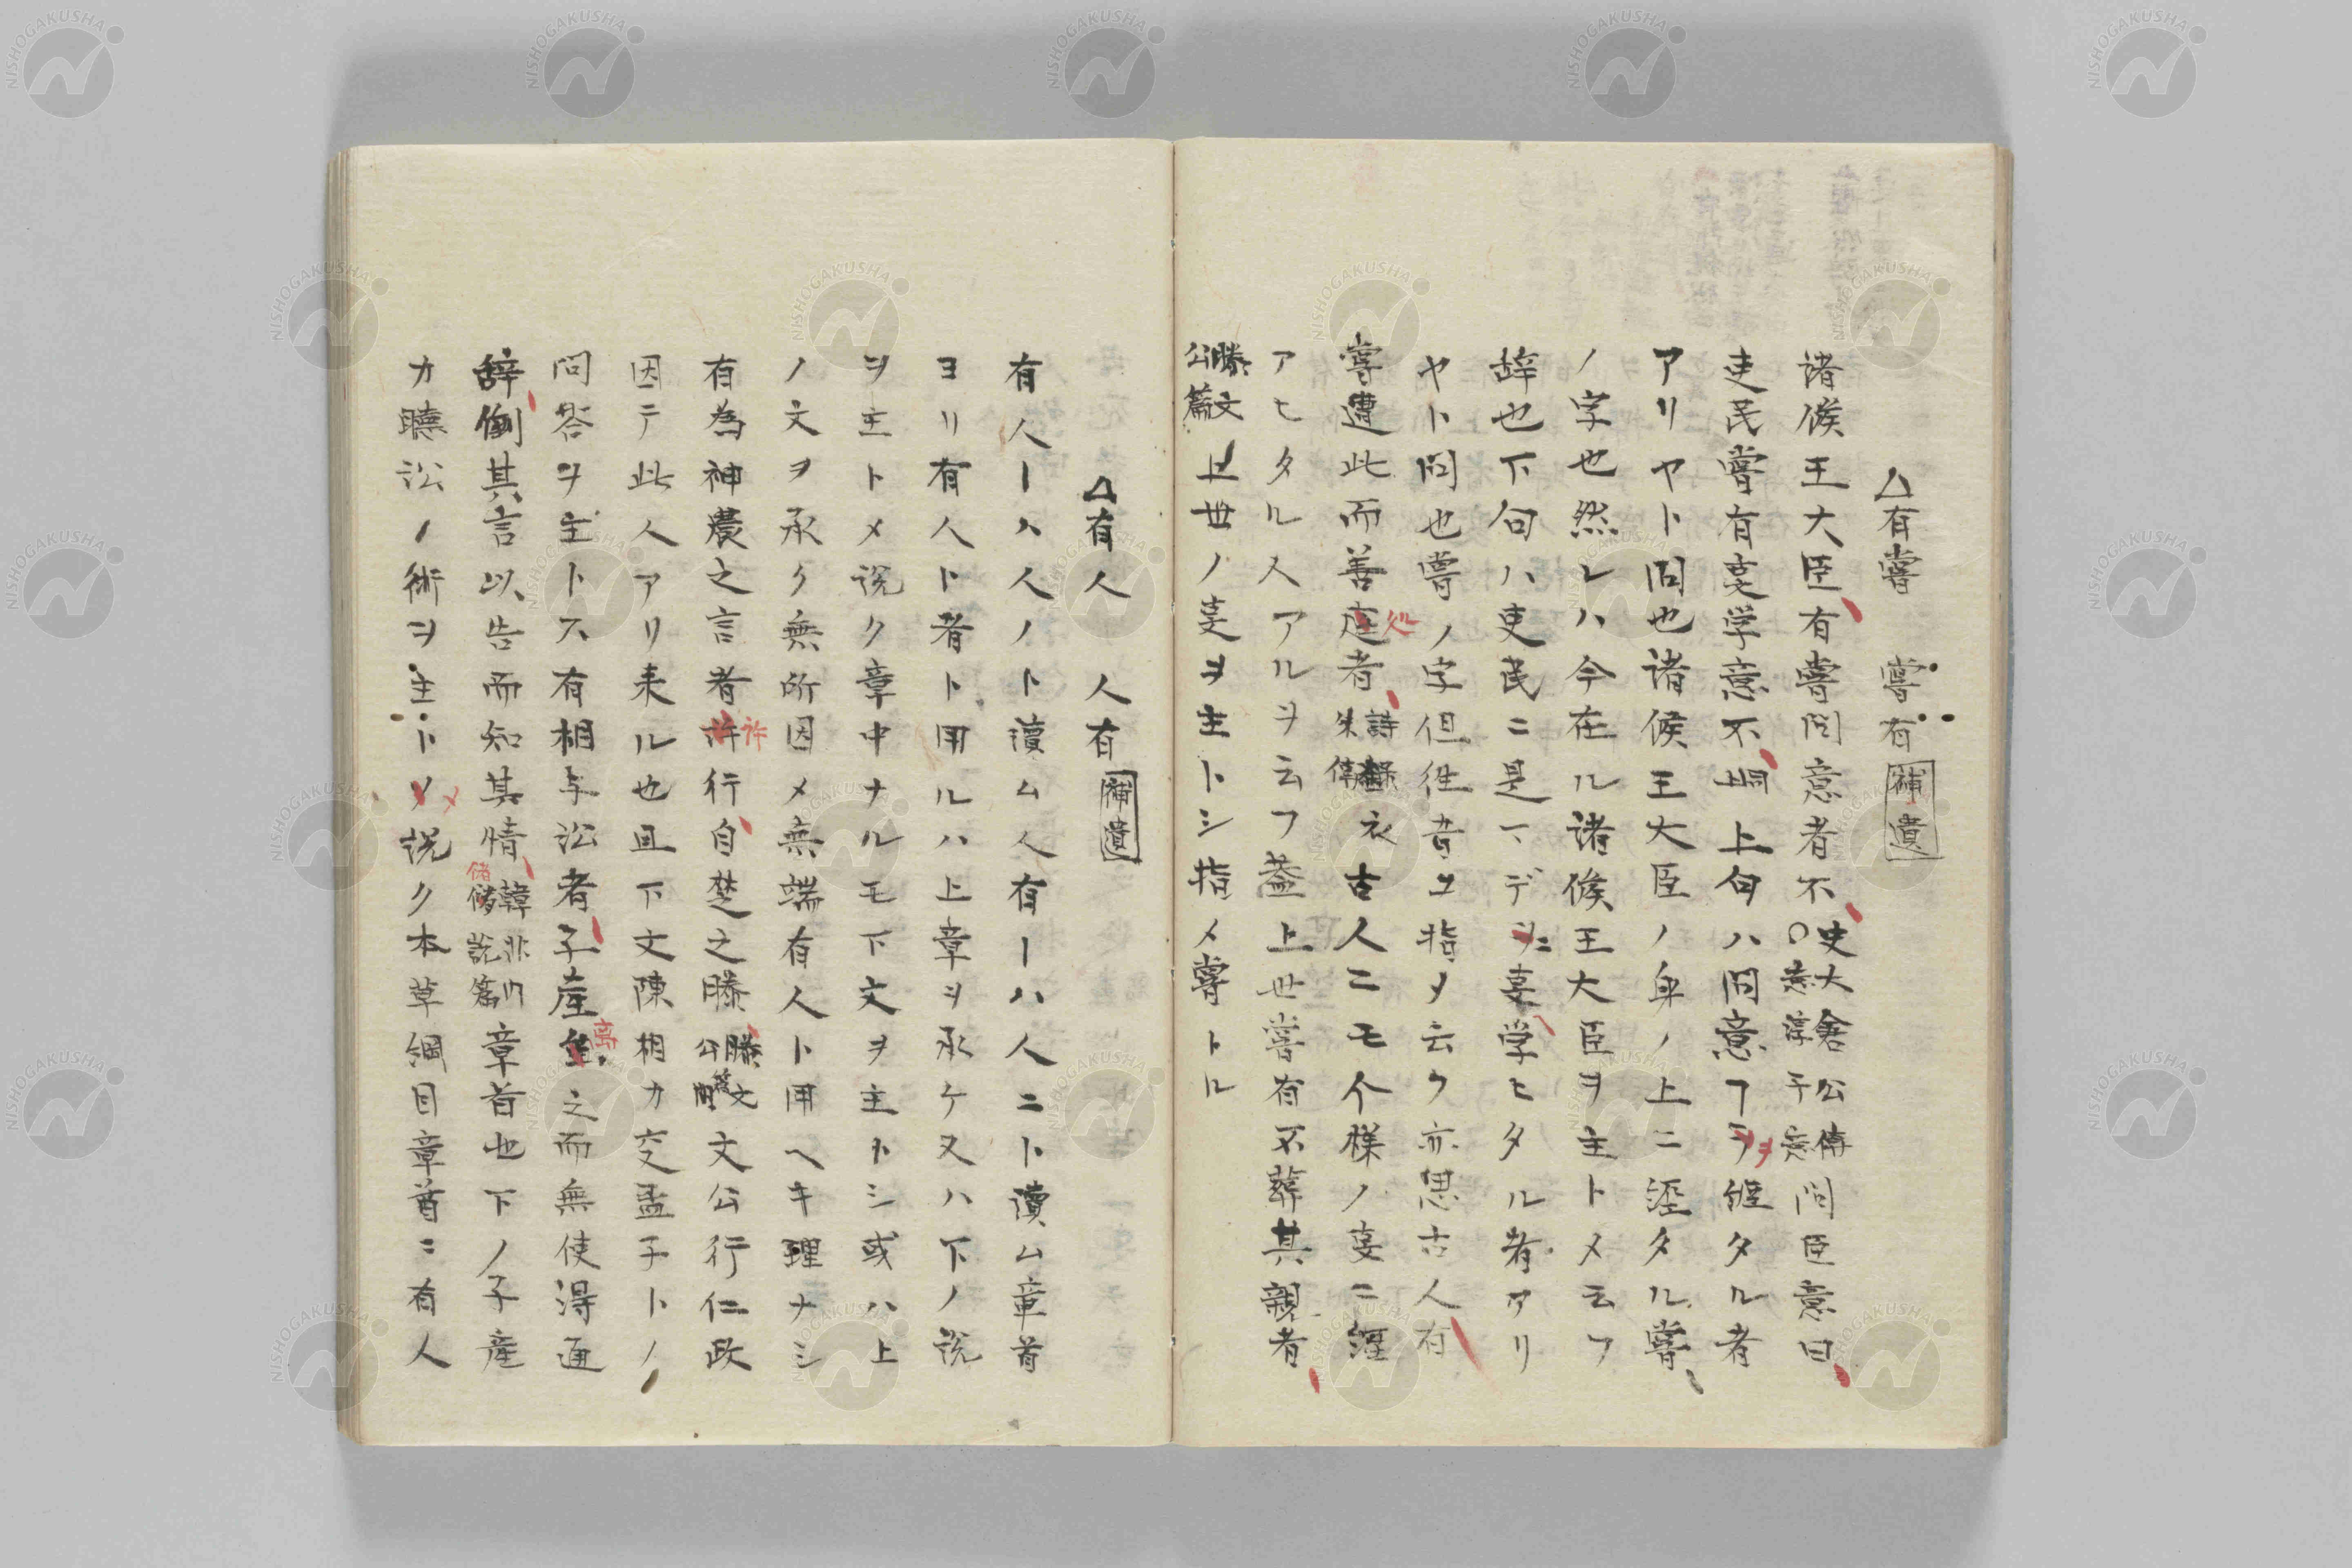 △有嘗　嘗有 補遺
諸侯王大臣有嘗問意者不 史大倉公傳 問臣意曰
吏民嘗有事学意不 上句ハ問意ヿヲ経タル者
アリヤト問也諸侯王大臣ノ身ノ上ニ経タル嘗
ノ字也然レハ今在ル諸侯王大臣ヲ主トメ云フ
辞也下句ハ吏民ニ是マデニ事学ヒタル者アリ
ヤト問也嘗ノ字但往昔ヱ指メ云ク亦思古人有
嘗遭此而善処者 詩緑衣朱傳 古人ニモ个様ノ事ニ經
アヒタル人アルヲ云フ蓋上世嘗有不葬其親者
滕文公篇 上世ノ事ヲ主トシ指メ嘗トル
△有人　人有 補遺
有人ーハ人ノト讀ム人有ーハ人ニト讀ム章首
ヨリ有人ト者ト用ルハ上章ヲ承ケ又ハ下ノ説
ヲ主トメ説ク章中ナルモ下文ヲ主トシ或ハ上
ノ文ヲ承ク無所因メ無端有人ト用ヘキ理ナシ
有為神農之言者許行自楚之滕 滕文公篇 文公行仁政
因テ此人アリ来ル也且下文陳相カ交孟子トノ
問答ヲ主トス有相与訟者子産离之而無使得通
辞倒其言以告而知其情 韓非内儲説篇 章首也下ノ子産
カ聴訟ノ術ヲ主トメ説ク本草綱目章首ニ有人